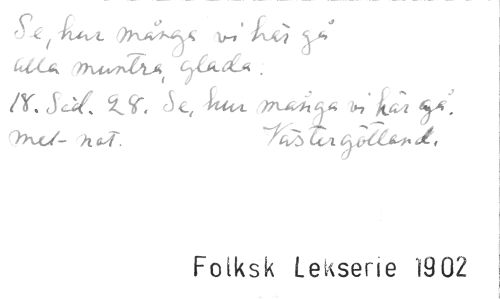 Se, hur många vi här gå
alla muntra, glada.
18. Sid. 28. Se, hur många vi här gå.
met- not. Västergötland.
Folksk Lekserie 1902